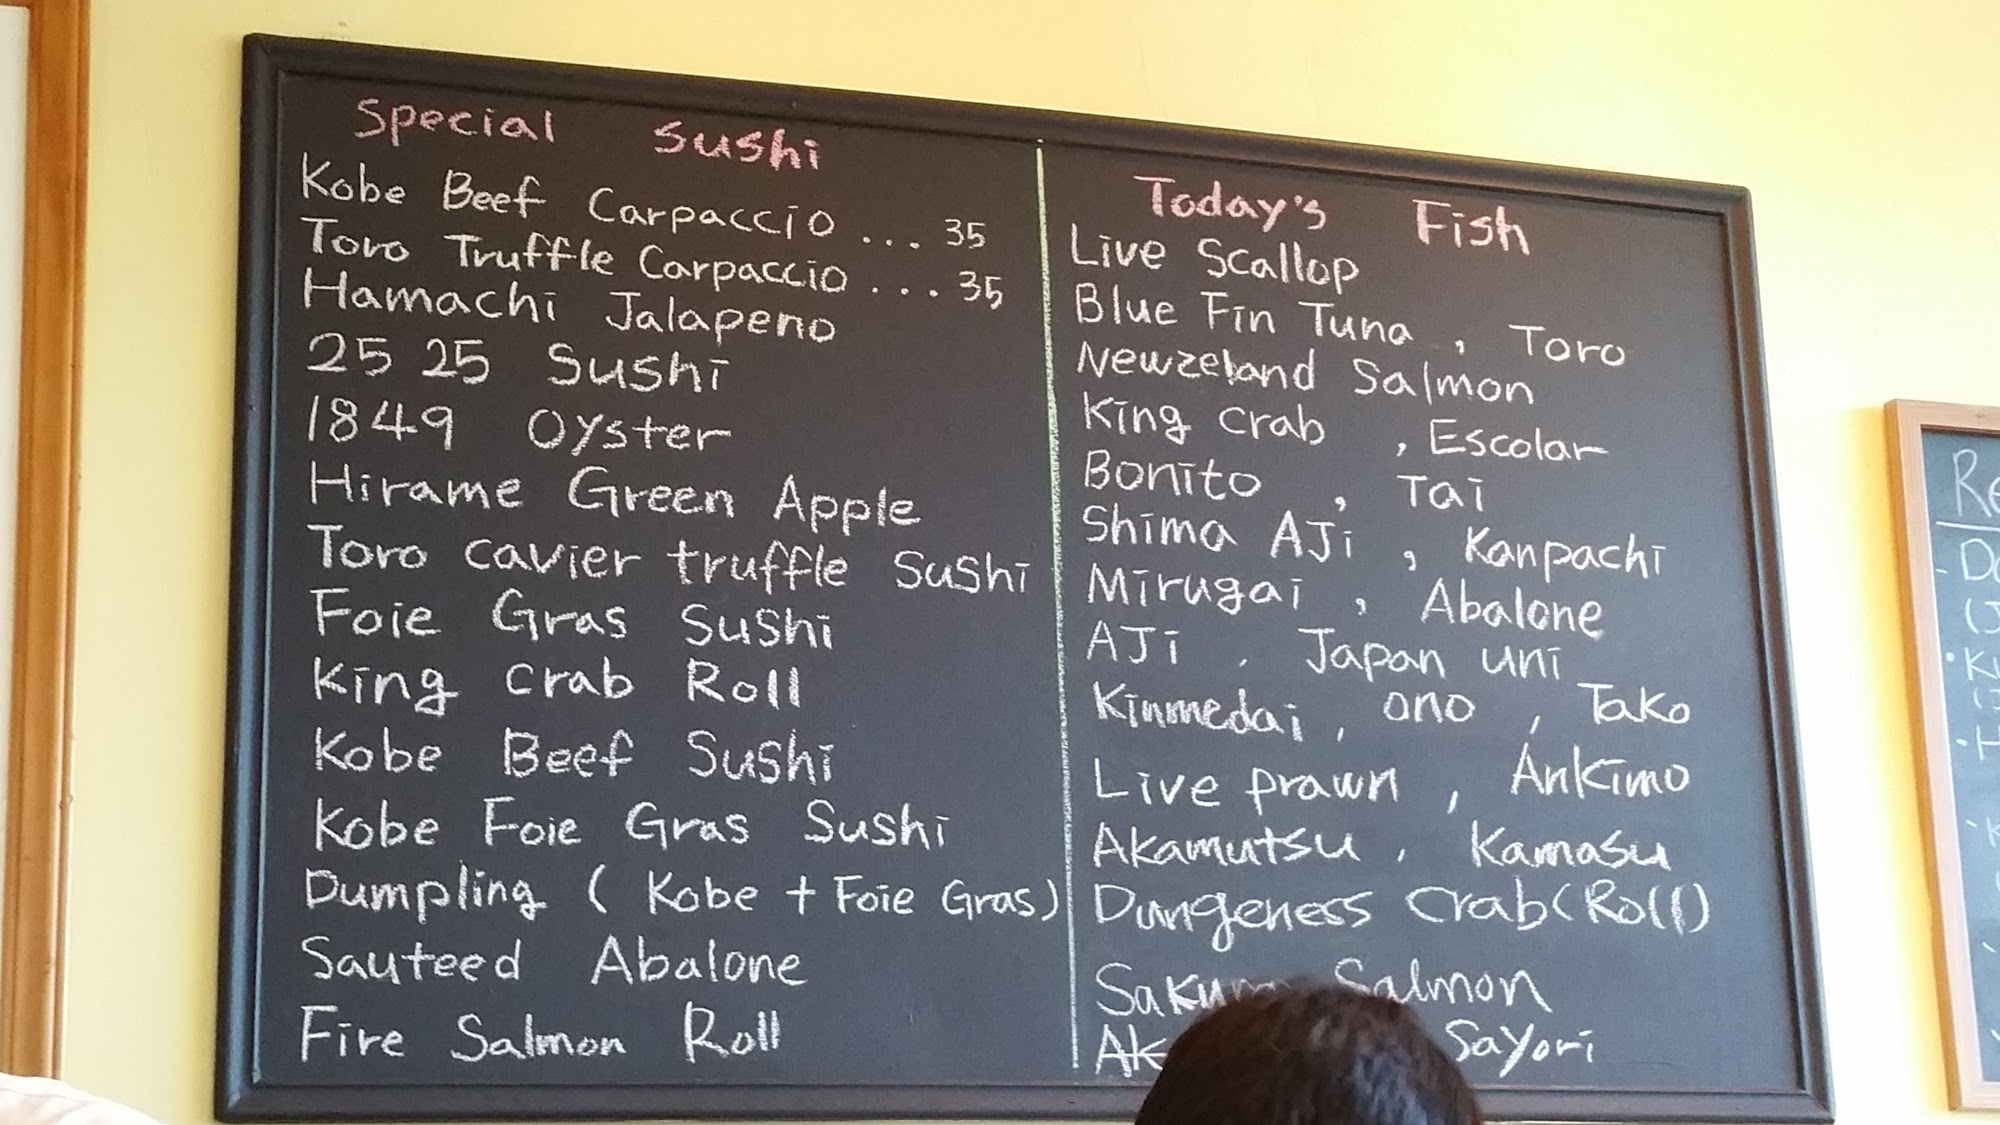 Special Sushi
Kobe Beef Carpaccio ... 35
Toro Truffle Carpaccio ... 35
Hamachi Jalapeno
25 25 Sushi
1849 Oyster
Hirame Green Apple
Toro cavier truffle Sushi
Foie Gras Sushi
King crab Roll
Kobe Beef Sushi
Kobe Foie Gras Sushi
Dumpling ( Kobe + Foie Gras)
Sauteed Abalone
Fire Salmon Roll
Today's Fish
Live Scallop
Blue Fin Tuna , Toro
Newzeland Salmon
King crab , Escolar
Bonito , Tai
Shima AJi , Kanpachi
Mirugai , Abalone
AJi , Japan uni
Kinmedai , ono , Tako
Live prawn , Ankimo
Akamutsu , Kamasu
Dungeness Crab (Roll)
Salmon
Sayori